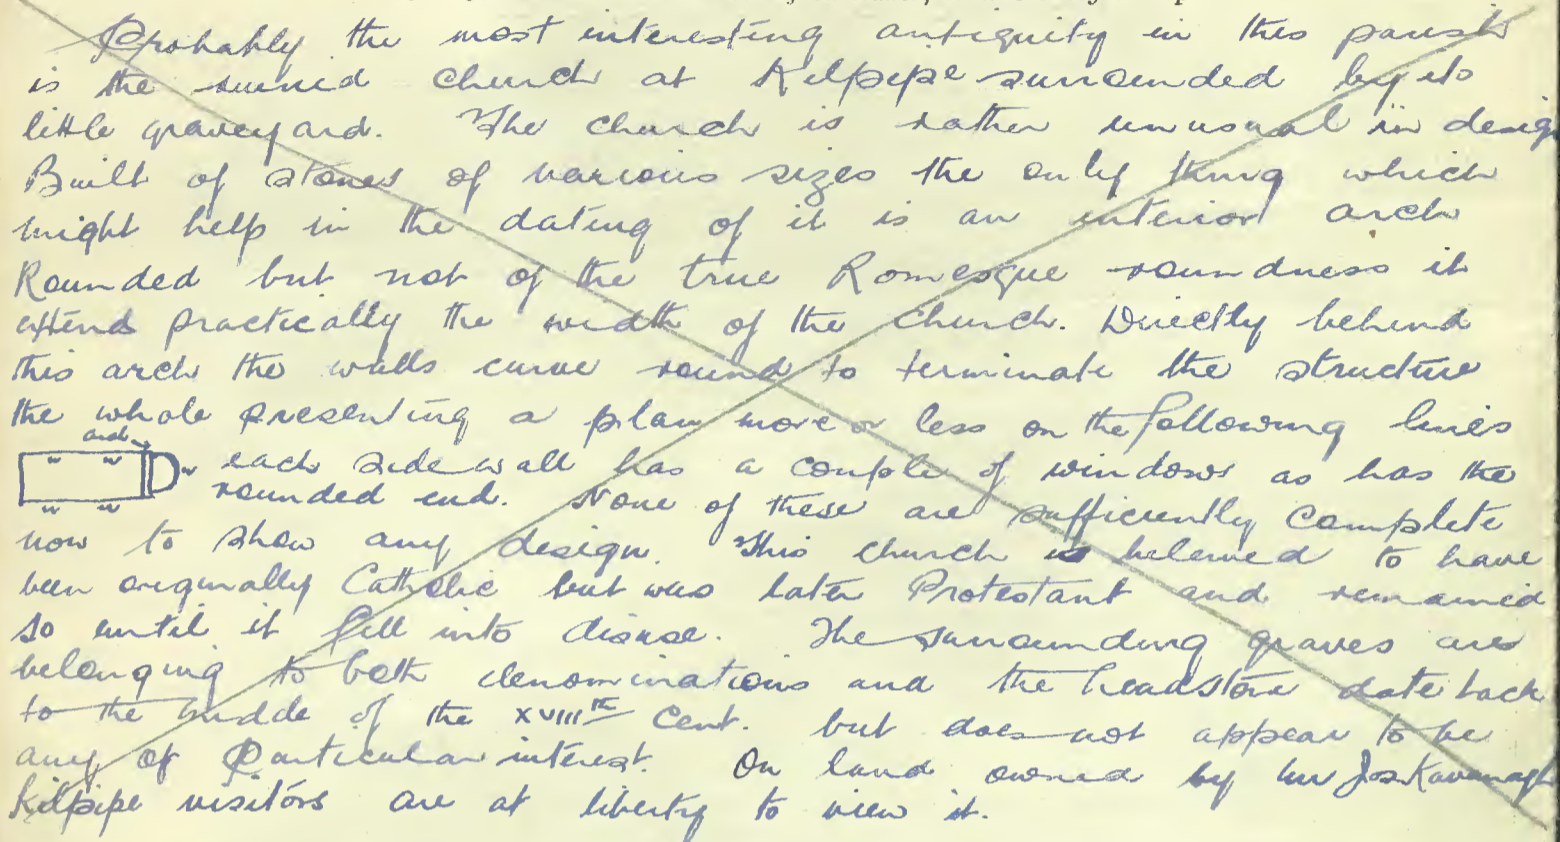 Probably the most interesting antiquity in this parish
is the ruined church at Kilpipe surrounded by its
little graveyard. The church is rather unusual in desig
Built of stones of various sizes the only thing which
might help in the dating of it is an interior arch
Rounded but not of the true Romesque roundness it
extend practically the width of the church. Directly behind
this arch the walls curve round to terminate the structure
the whole presenting a plan more or less on the following lines
arch
w w w each side wall has a couple of windows as has the
w w rounded end. None of these are sufficiently complete
now to show any design. This church is believed to have
been originally Catholic but was later Protestant and remained
so until it fell into disuse. The surrounding graves are
belonging to both denominations and the headstone date back
to the middle of the XVIIIth Cent. but does not appear to be
any of Particular interest. On land owned by Mr Jos Kavanagh
Kilpipe visitors are at liberty to view it.